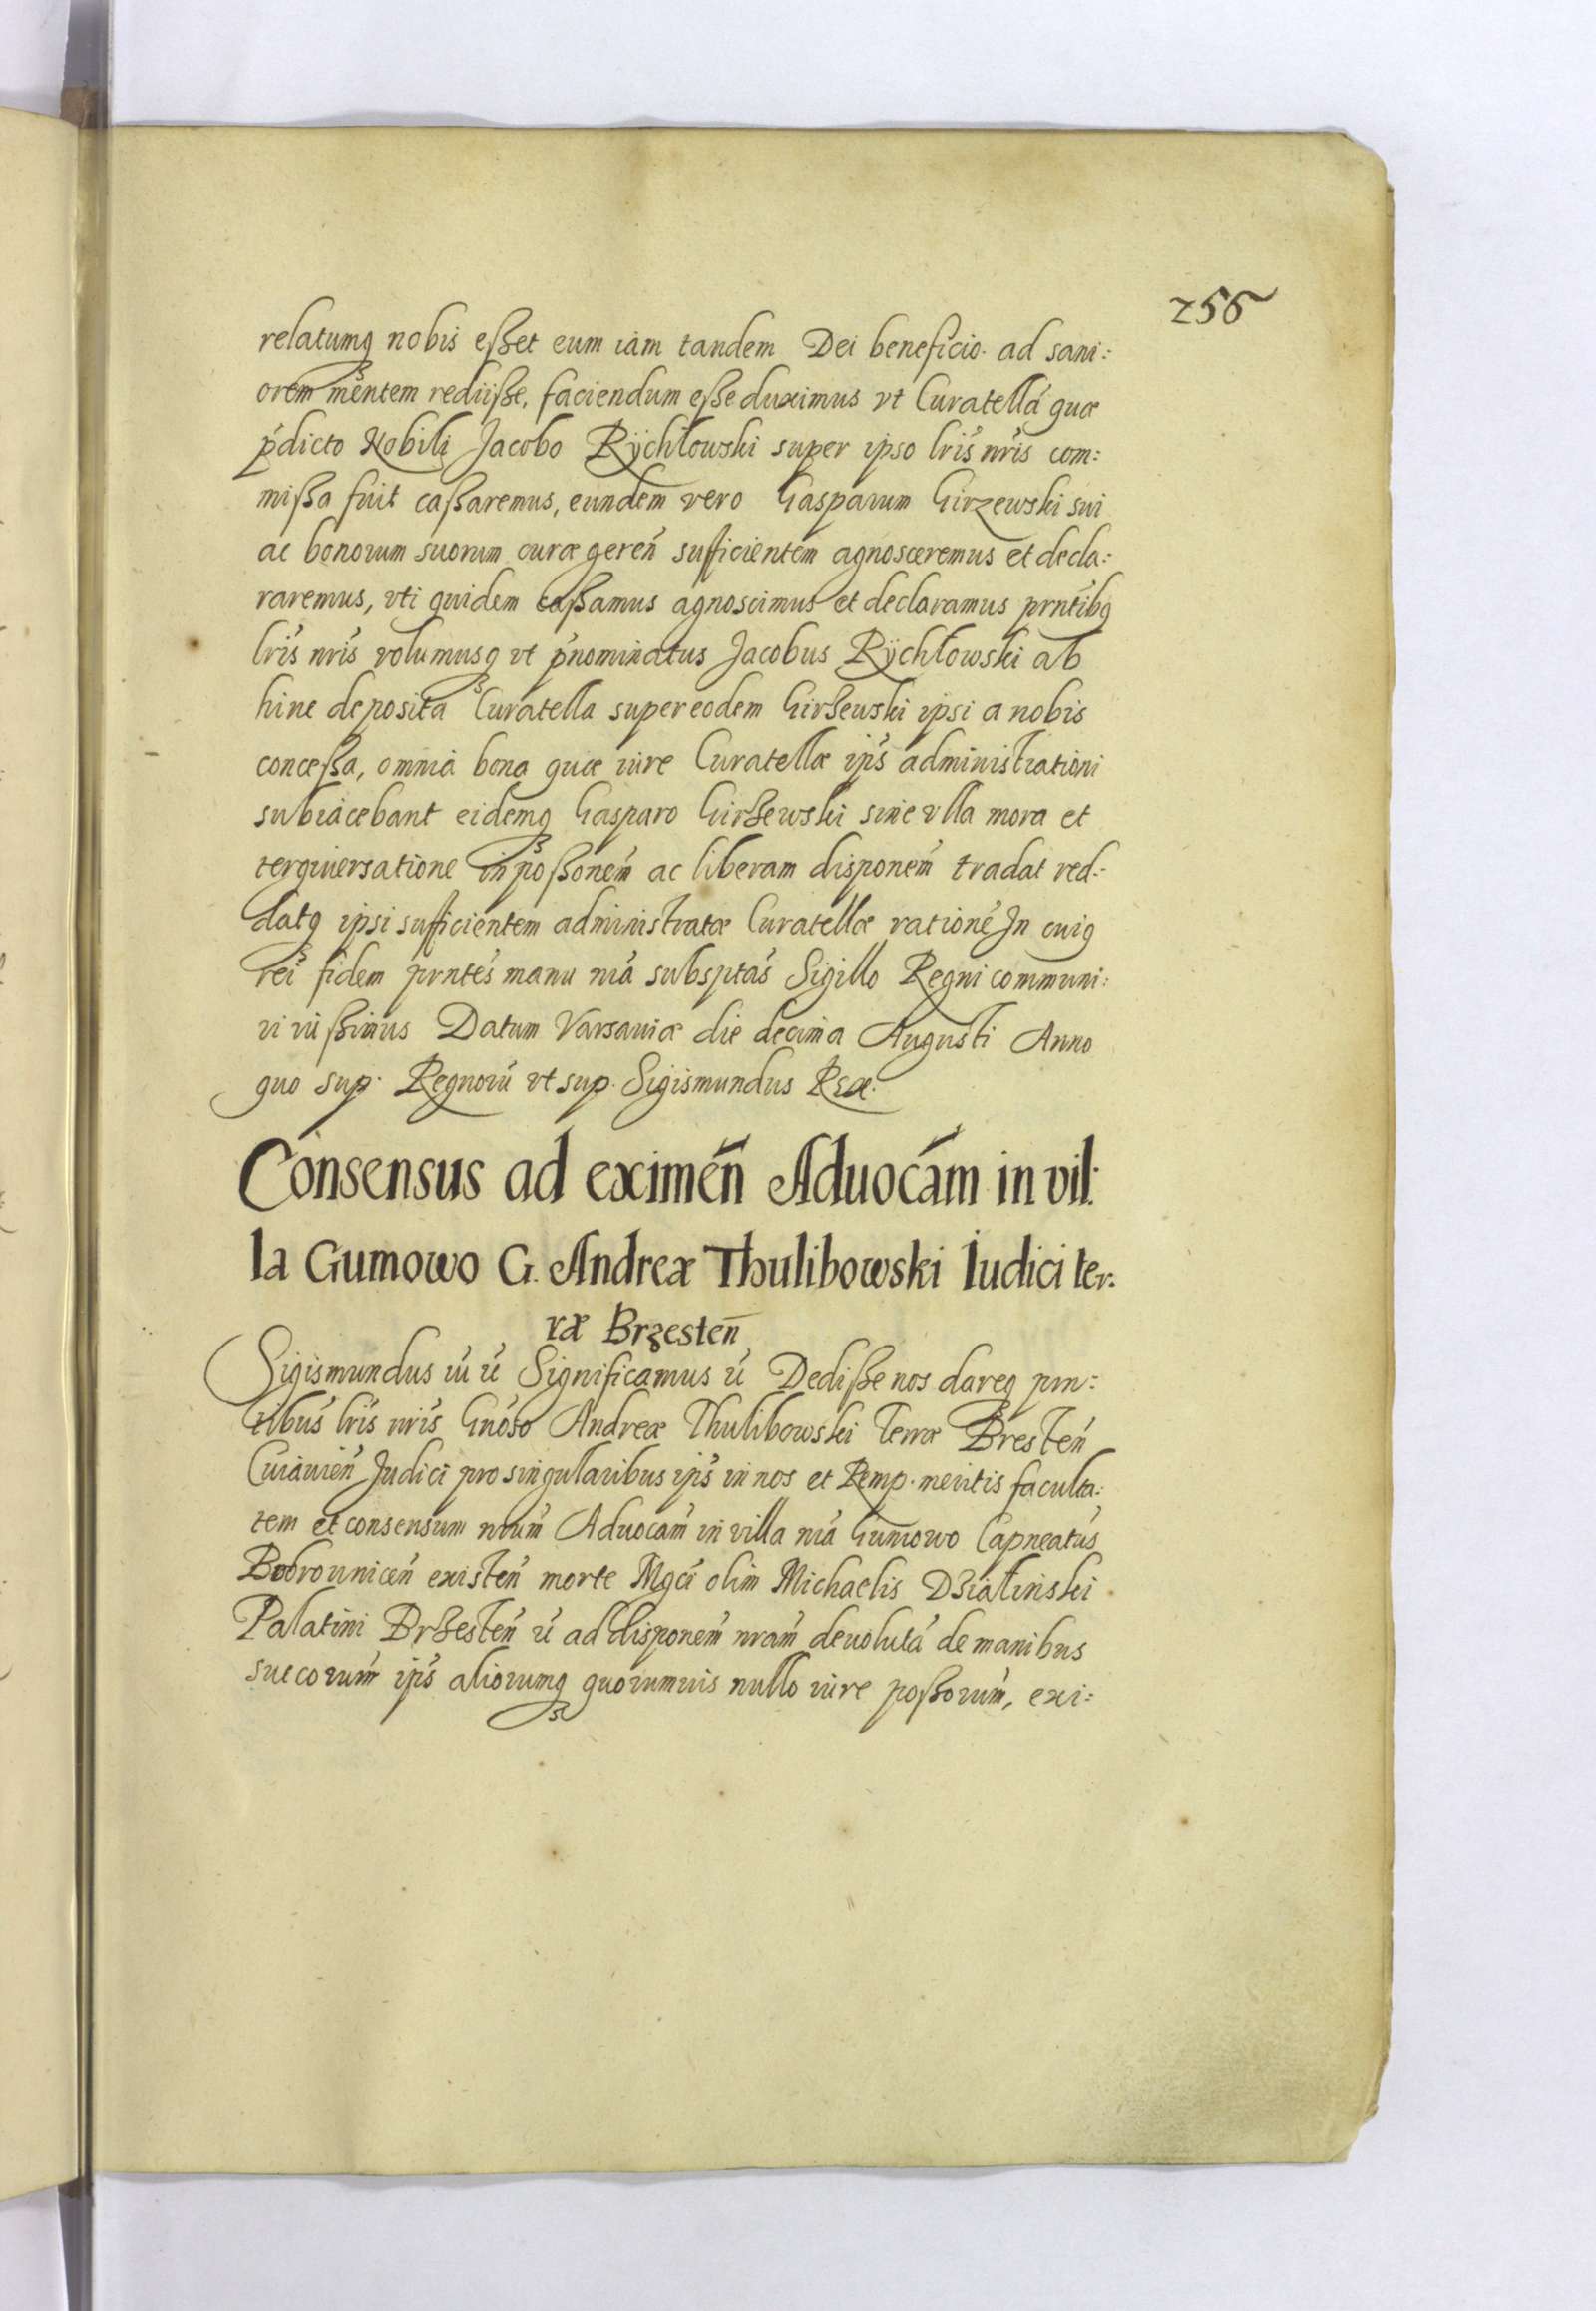 256
relatumq nobis esset eum iam tandem Dei beneficio ad sani:
orem mentem rediisse, faciendum esse duximus vt Curatellá quæ
pdicto Nobili Jacobo Rÿchłowski super ipso lris nris com:
missa fuit cassaremus, eundem vero Gasparum Girzewski sui
ac bonorum suorum curæ geren̄ sufficientem agnosceremus et decla:
raremus, vti quidem cassamus agnoscimus et declaramus prntibq
lris nris volumusq vt pnominatus Jacobus Rÿchłowski ab
hinc deposita Curatella super eodem Girzewski ipsi a nobis
concessa, omnia bona quæ iure Curatellæ ips administrationi
subiacebant eidemq Gasparo Girzewski sine vlla mora et
tergiuersatione in possonem ac liberam disponem tradat red:
datq ipsi sufficientem administratæ Curatellæ rationé In cuiq
rei fidem prntes manu nra subsptas Sigillo Regni communi:
ri iussimus Datum Varsauiæ die decima Augusti Anno
quo sup. Regnorū vt sup. Sigismundus Rex.
Consensus ad eximen̄ Aduocám in vil:
la Gumowo G. Andreæ Thulibowski Iudici ter:
ræ Brzesten̄
Sigismundus iii ū Significamus ū Dedisse nos dareq prn:
tibus lris nris Gnoso Andreæ Thulibowski Terræ Bresten̄
Cuiauien̄ Judici pro singularibus ips in nos et Remp. meritis faculta:
tem et consensum nrum Aduocam in villa nra Gumowo Capneatus
Bobrounicen̄ existen̄ morte Mgci olim Michaelis Dzialinski
Palatini Brzesten̄ ū ad disponem nram deuolutá de manibus
succorum ips aliorumq quorumuis nullo iure possorum, exi: